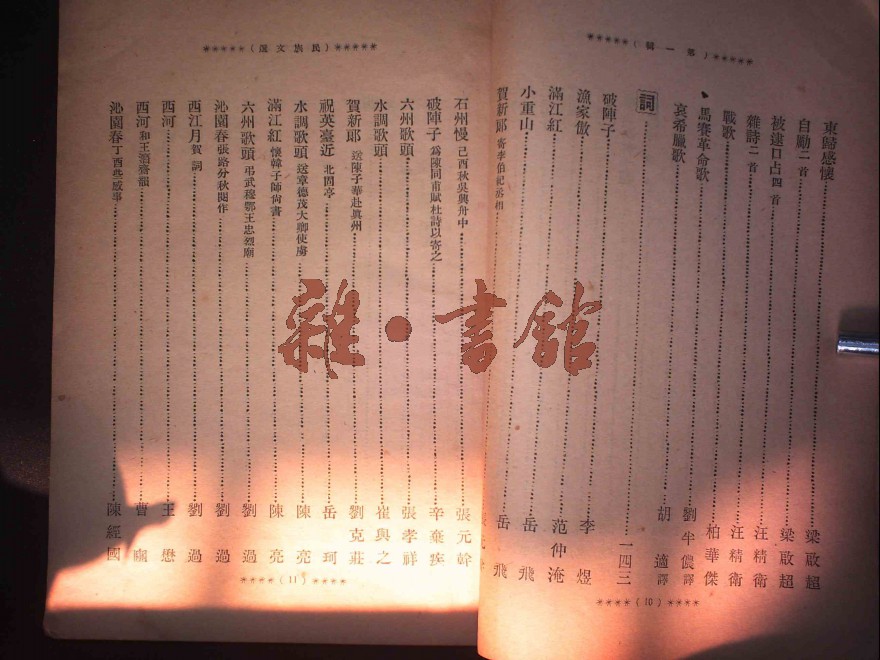 (第一輯)
東歸感懷 梁啟超
自勵二首 梁啟超
被逮口占四首 汪精衛
雜詩二首 汪精衛
戰歌 柏華傑
馬賽革命歌 劉半儂譯
哀希臘歌 胡適譯
詞 一四三
破陣子 李煜
漁家傲 范仲淹
滿江紅 岳飛
小重山 岳飛
賀新郎 寄李伯紀丞相
(10)
(民族文選)
石州慢 己酉秋吳興舟中 張元幹
破陣子 為陳同甫賦杜詩以寄之 辛棄疾
六州歌頭 張孝祥
水調歌頭 崔與之
賀新郎 送陳子華赴真州 劉克莊
祝英臺近 北固亭 岳珂
水調歌頭 送章德茂大卿使虜 陳亮
滿江紅 懷韓子師尚書 陳亮
六州歌頭 弔武穆鄂王忠烈廟 劉過
沁園春 張路分秋閱作 劉過
西江月 賀詞 劉過
西河 王埜
西河 和王潛齋韻 曹豳
沁園春 丁酉些感事 陳經國
(11)
雜·書館